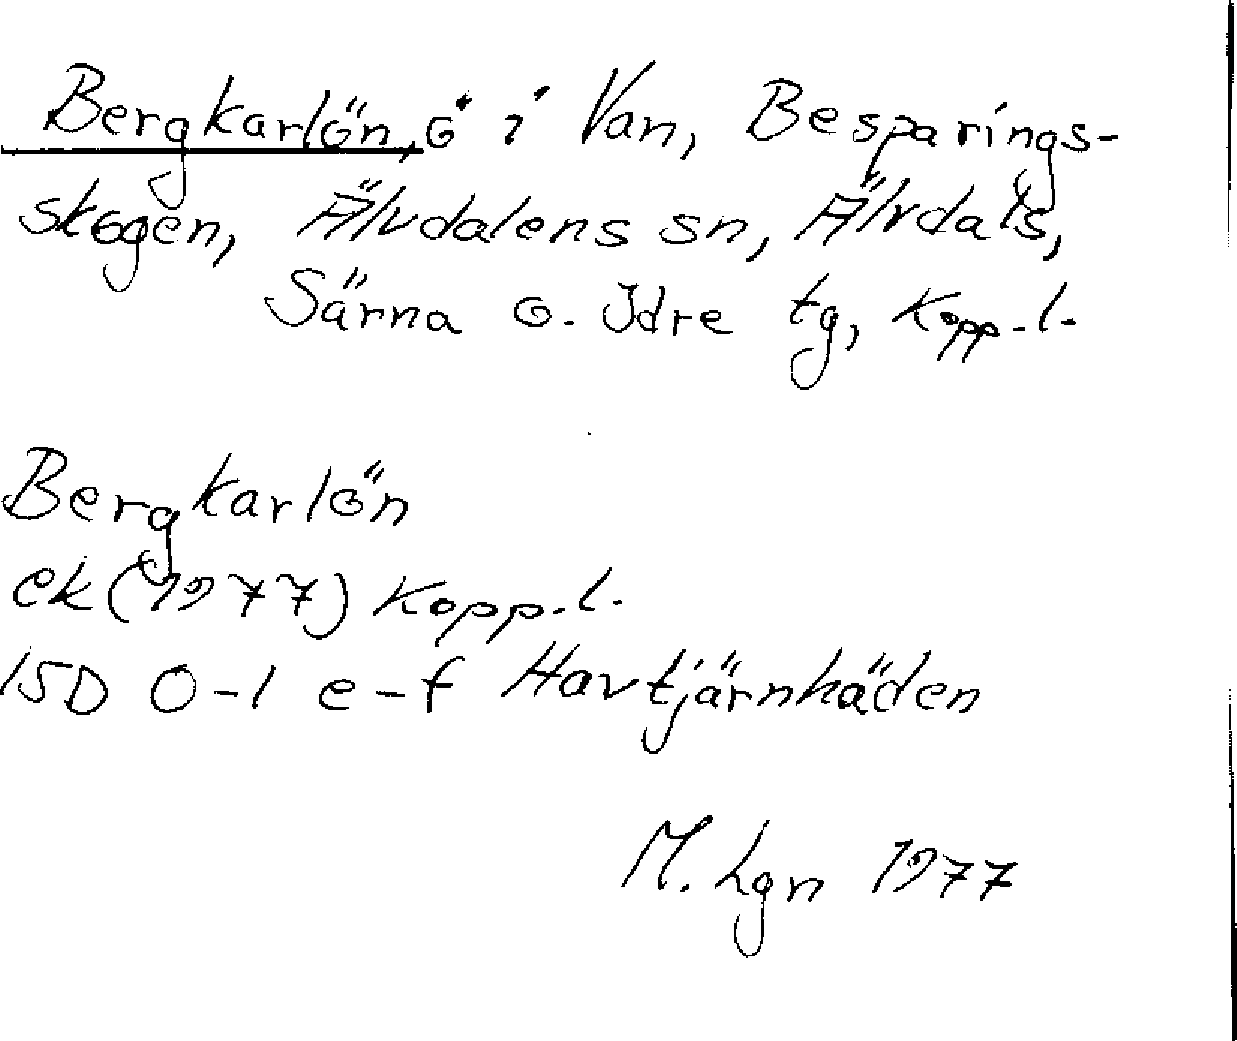 Bergkarlön, ö i Van, Besparings-
skogen, Älvdalens sn, Älvdals,
Särna o. Idre tg, Kopp.l.
Bergkarlön
ek (1977) Kopp.l.
15D 0-1 e-f Havtjärnhäden
M. Lgn 1977